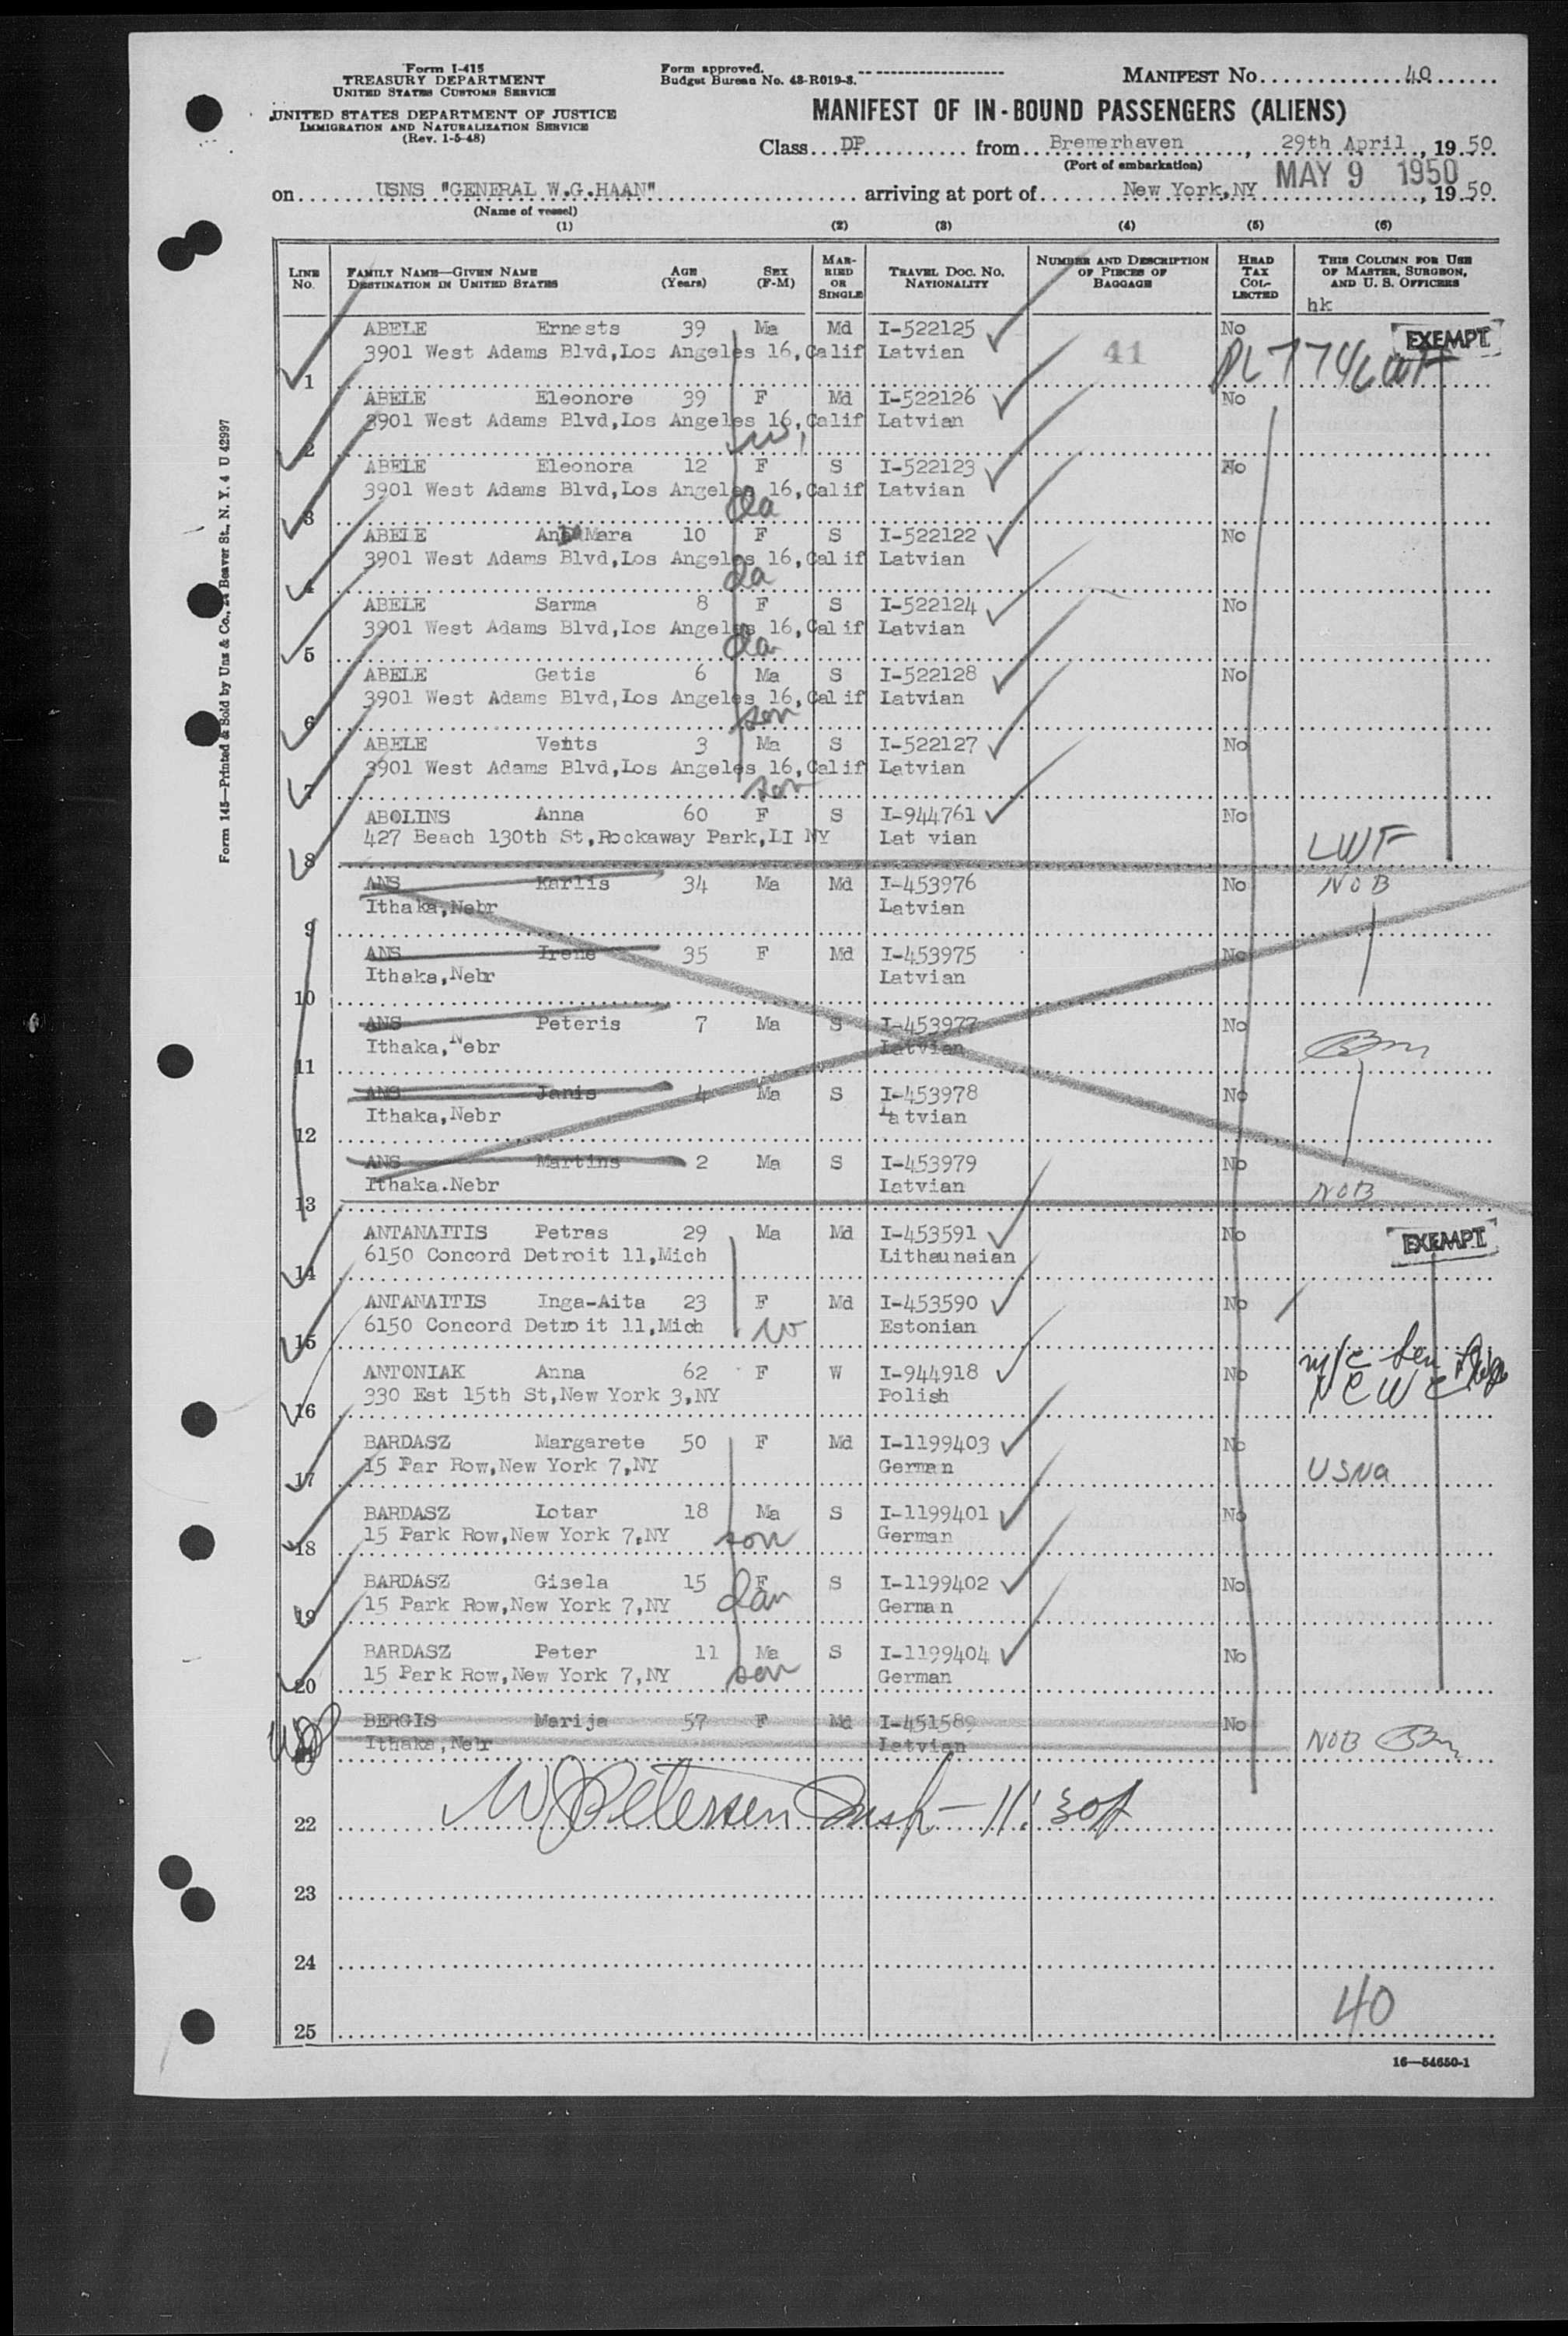 Form I-415
TREASURY DEPARTMENT
UNITED STATES CUSTOMS SERVICE
UNITED STATES DEPARTMENT OF JUSTICE
IMMIGRATION AND NATURALIZATION SERVICE
(Rev. 1-5-48)
Form approved.
Budget Bureau No. 43-R019-3.
MANIFEST No. 40
MANIFEST OF IN-BOUND PASSENGERS (ALIENS)
Class DP from Bremerhaven, 29th April, 19 50
(Port of embarkation)
MAY 9 1950
on USNS "GENERAL W.G.HAAN" arriving at port of New York,NY, 19 50
(Name of vessel)
(1) (2) (3) (4) (5) (6)
LINE No. FAMILY NAME—GIVEN NAME DESTINATION IN UNITED STATES AGE (Years) SEX (F-M) MARRIED OR SINGLE TRAVEL DOC. No. NATIONALITY NUMBER AND DESCRIPTION OF PIECES OF BAGGAGE HEAD TAX COLLECTED THIS COLUMN FOR USE OF MASTER, SURGEON, AND U. S. OFFICERS
hk
ABELE Ernests 39 Ma Md I-522125 No EXEMPT
3901 West Adams Blvd,Los Angeles 16,Calif Latvian 41
1
ABELE Eleonore 39 F Md I-522126 No
3901 West Adams Blvd,Los Angeles 16,Calif Latvian
2 w
ABELE Eleonora 12 F S I-522123 No
3901 West Adams Blvd,Los Angeles 16,Calif Latvian
3 da
ABELE Mara 10 F S I-522122 No
3901 West Adams Blvd,Los Angeles 16,Calif Latvian
4 da
ABELE Sarma 8 F S I-522124 No
3901 West Adams Blvd,Los Angeles 16,Calif Latvian
5 da
ABELE Gatis 6 Ma S I-522128 No
3901 West Adams Blvd,Los Angeles 16,Calif Latvian
6 son
ABELE Vents 3 Ma S I-522127 No
3901 West Adams Blvd,Los Angeles 16,Calif Latvian
7 son
ABOLINS Anna 60 F S I-944761 No
427 Beach 130th St,Rockaway Park,LI NY Lat vian LWF
8
ANS Karlis 34 Ma Md I-453976 No NOB
Ithaka,Nebr Latvian
9
ANS Irene 35 F Md I-453975 No
Ithaka,Nebr Latvian
10
ANS Peteris 7 Ma S I-453977 No
Ithaka,Nebr Latvian
11
ANS Janis 4 Ma S I-453978 No
Ithaka,Nebr Latvian
12
ANS Martins 2 Ma S I-453979 No
Ithaka.Nebr Latvian NOB
13
ANTANAITIS Petras 29 Ma Md I-453591 No EXEMPT
6150 Concord Detroit 11,Mich Lithaunaian
14
ANTANAITIS Inga-Aita 23 F Md I-453590 No
6150 Concord Detroit 11,Mich w Estonian
15
ANTONIAK Anna 62 F W I-944918 No
330 Est 15th St,New York 3,NY Polish NCWC
16
BARDASZ Margarete 50 F Md I-1199403 No
15 Par Row,New York 7,NY German USNA
17
BARDASZ Lotar 18 Ma S I-1199401 No
15 Park Row,New York 7,NY son German
18
BARDASZ Gisela 15 F S I-1199402 No
15 Park Row,New York 7,NY dau German
19
BARDASZ Peter 11 Ma S I-1199404 No
15 Park Row,New York 7,NY son German
20
BERGIS Marija 57 F Md I-451589 No NOB
Ithaka,Nebr Latvian
W Petersen Insp
22
23
24
40
25
16—54650-1
Form 145—Printed & Sold by Unz & Co., 24 Beaver St., N. Y. 4 U 42997